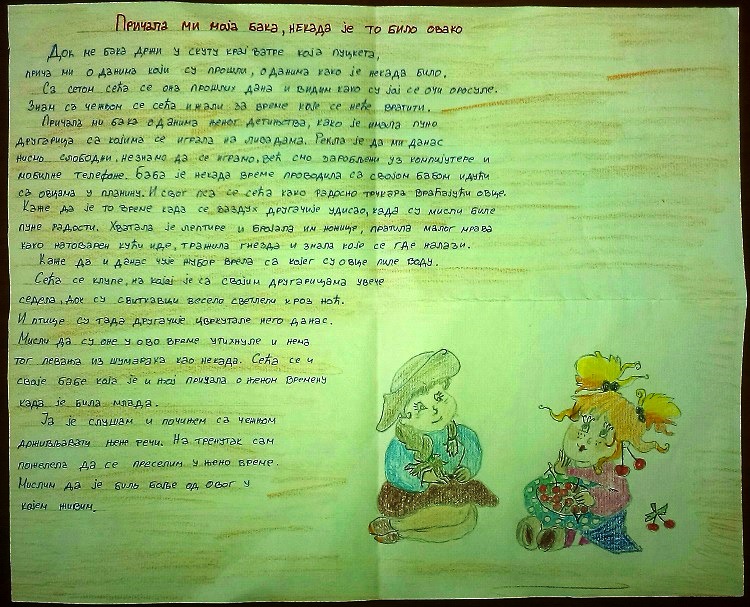 Причала ми моја бака, некада је то било овако
Док ме бака држи у скуту крај ватре која пуцкета,
прича ми о данима који су прошли, о данима како је некада било.
Са сетом сећа се она прошлих дана и видим како су јај се очи оросуле.
Знам са чежњом се сећа и жали за време које се неће вратити.
Причала ми бака о данима њеног детињства, како је имала пуно
другарица са којима се играла на ливадама. Рекла је да ми данас
нисмо слободни, незнамо да се играмо, већ смо заробљени уз компијутере и
мобилне телефоне. Баба је некада време проводила са својом бабом идући
са овцама у планину. И свог пса се сећа како радосно трчкара враћајући овце.
Каже да је то време када се ваздух другачије удисао, када су мисли биле
пуне радости. Хватала је лептире и бројала им ножице, пратила малог мрава
како натоварен кући иде, тражила гнезда и знала које се где налази.
Каже да и данас чује жубор врела са којег су овце пиле воду.
Сећа се клупе, на којај је са својим другарицама увече
седела, док су свиткавци весело светлели кроз ноћ.
И птице су тада другачије цвркутале него данас.
Мисли да су оне у ово време утихнуле и нема
тог певања из шумарака као некада. Сећа се и
своје бабе која је и њој причала о њеном времену
када је била млада.
Ја је слушам и почињем са чежњом
доживљавати њене речи. На тренутак сам
пожелела да се преселим у њено време.
Мислим да је биль боље од овог у
којем живим.